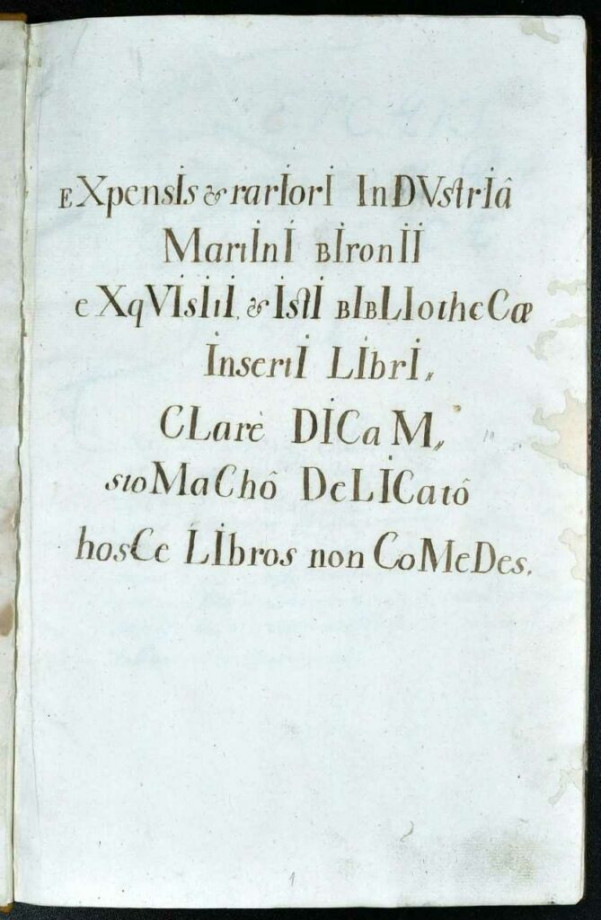 EXpensIs & rarIorI InDVstrIâ
MartInI BIronII
eXqVIsItI, & IstI BIBLIotheCæ
InsertI LIbrI,,
CLarè DICaM,,
stoMaChô DeLICatô
hosCe LIbros non CoMeDes.
1